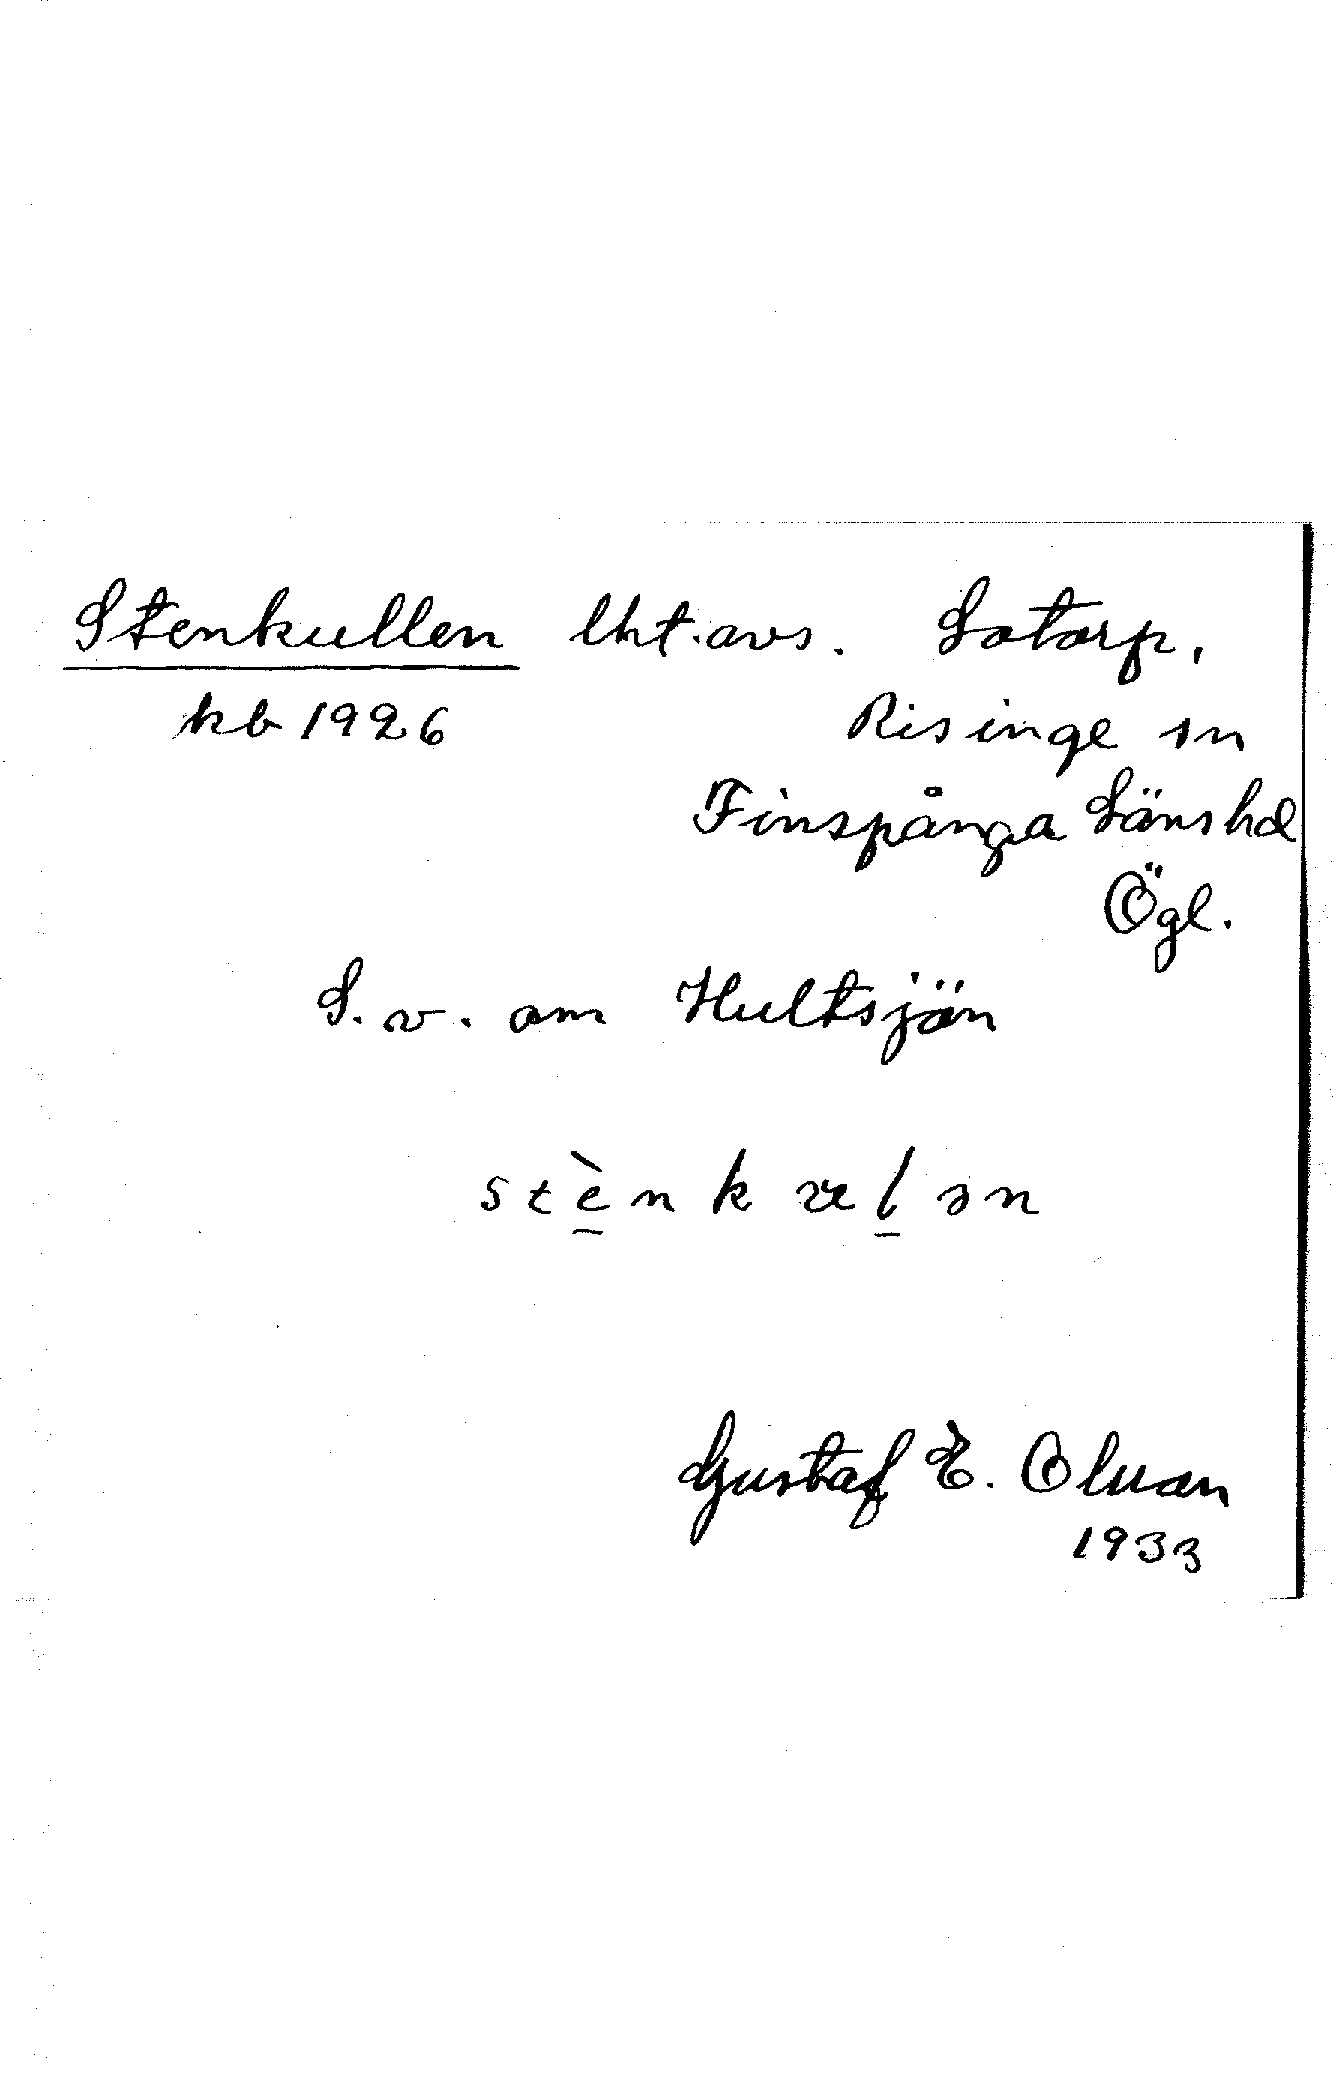 Stenkullen lht. avs. Lotorp,
kb 1926 Risinge sn
Finspånga Länshd
Ögl.
S. v. om Hultsjön
stènkulən
Gustaf E. Olson
1933